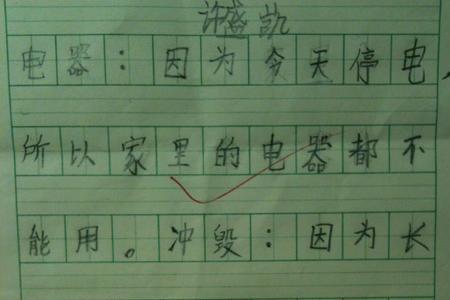 许盛凯
电器：因为今天停电，
所以家里的电器都不
能用。冲毁：因为长